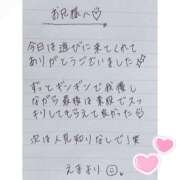 お兄様へ♡
今日は遊びに来てくれて
ありがとうございました
ずっとギンギンで我慢し
ながら最後は素股でスッ
キリしてもらえて良かった♡
次は人見知りなしで!笑
えまより